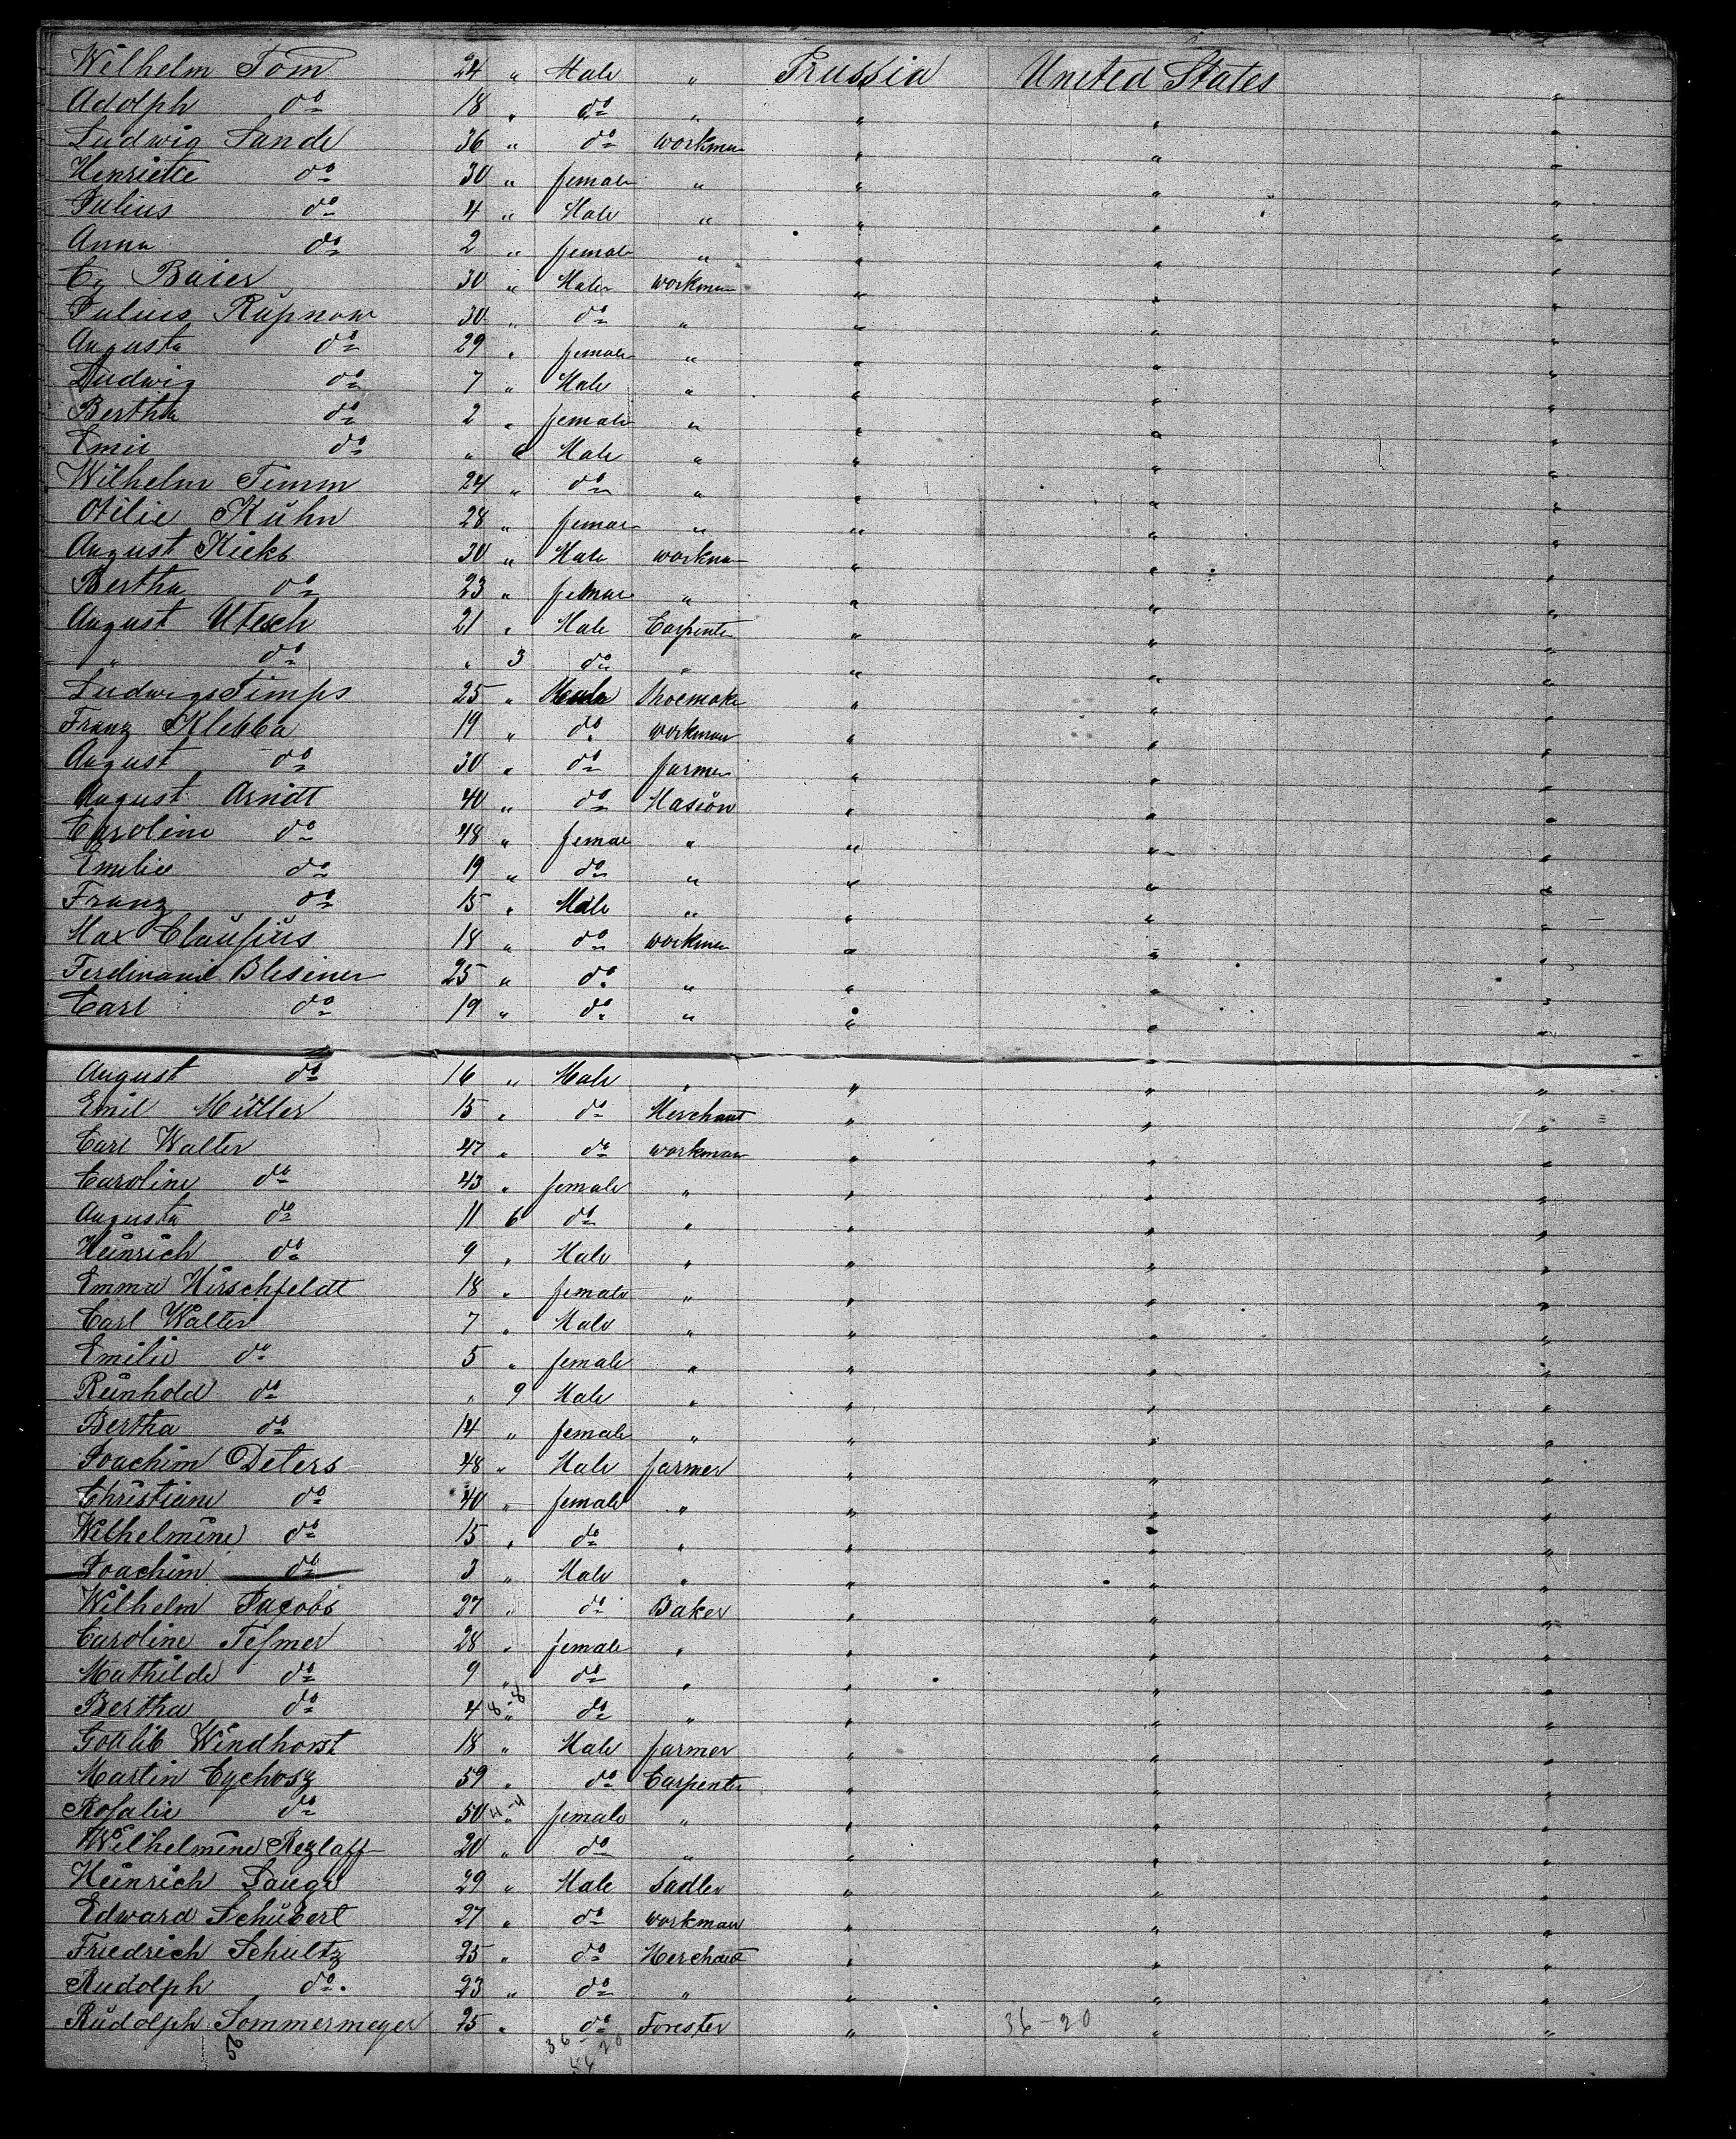 Wilhelm Tom 24 " Male " Prussia United States "
Adolph do 18 " do " " " "
Ludwig Sande 36 " do workman " " "
Henriette do 30 " female " " " "
Julius do 4 " Male " " " "
Anna do 2 " female " " " "
Baier 30 " Male workman " " "
Julius Rüpnow 30 " do " " " "
Augusta do 29 " female " " " "
Ludwig do 7 " Male " " " "
Bertha do 2 " female " " " "
Emil do " Male " " " "
Wilhelm Timm 24 " do " " " "
Otilie Kühn 28 " female " " " "
August Kieks 30 " Male workman " " "
Bertha do 23 " female " " " "
August Utesch 21 " Male Carpenter " " "
" do " 3 do " " " "
Ludwig Timps 25 " Male Shoemaker " " "
Franz Klebba 19 " do workman " " "
August do 30 " do farmer " " "
August Arndt 40 " do Masion " " "
Caroline do 48 " female " " " "
Emilie do 19 " do " " " "
Franz do 15 " Male " " " "
Max Claußius 18 " do workman " " "
Ferdinand Blesiner 25 " do " " " "
Carl do 19 " do " " " "
August do 16 " Male " " " "
Emil Müller 15 " do Merchant " " "
Carl Walter 47 " do workman " " "
Caroline do 43 " female " " " "
Augusta do 11 6 do " " " "
Heinrich do 9 " Male " " " "
Emma Hirschfeldt 18 " female " " " "
Carl Walter 7 " Male " " " "
Emilie do 5 " female " " " "
Reinhold do " 9 Male " " " "
Bertha do 14 " female " " " "
Joachim Deters 48 " Male farmer " " "
Christiane do 40 " female " " " "
Wilhelmine do 15 " do " " " "
Joachim do 3 " Male " " " "
Wilhelm Jacobs 27 " do Baker " " "
Caroline Teßmer 28 " female " " " "
Mathilde do 9 " do " " " "
Bertha do 4 8-8 " do " " " "
Gottlib Windhorst 18 " Male farmer " " "
Martin Cychosz 59 " do Carpenter " " "
Rosalie do 50 4-4 " female " " " "
Wilhelmine Rezlaff 20 " do " " " "
Heinrich Lange 29 " Male Sadler " " "
Edward Schübert 27 " do workman " " "
Friedrich Schültz 25 " do Merchant " " "
Rudolph do. 23 " do " " " "
Rüdolph Sommermeyer 25 " do Forester " 36-20 " "
36 20
56